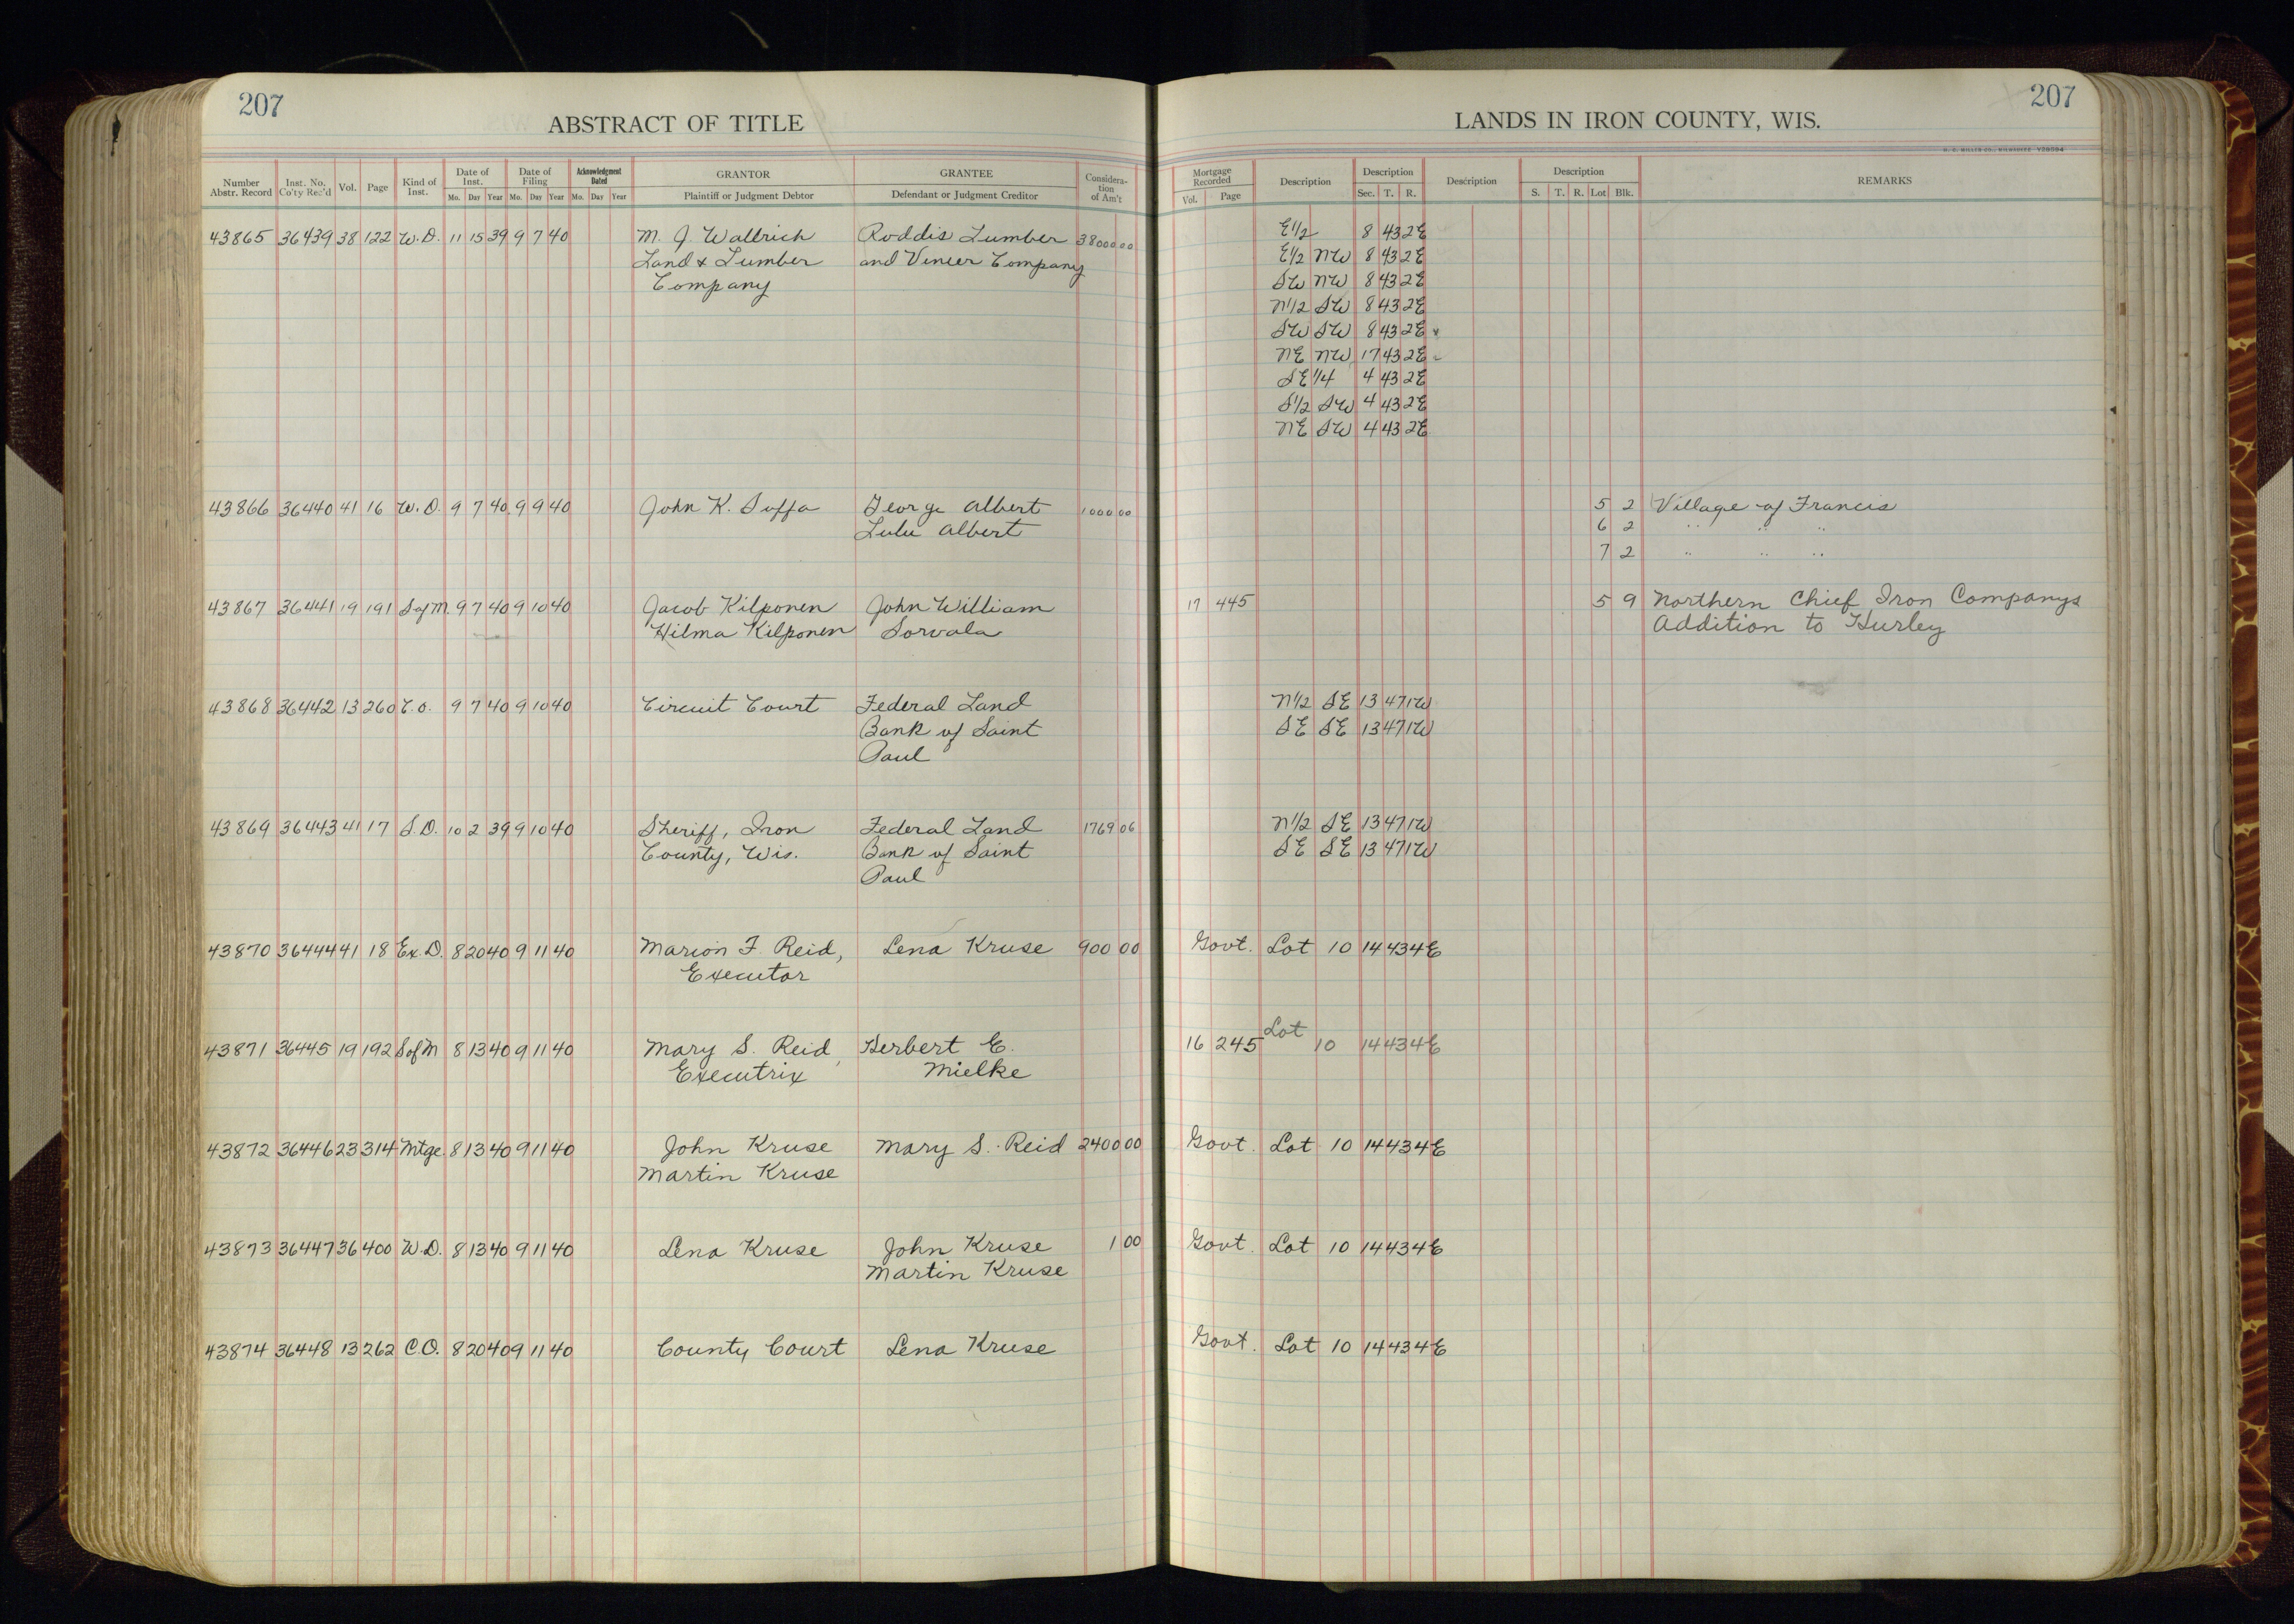 207
ABSTRACT OF TITLE
Number Abstr. Record Inst. No. Co'ty Rec'd Vol. Page Kind of Inst. Date of Inst. Mo. Day Year Date of Filing Mo. Day Year Acknowledgment Dated Mo. Day Year GRANTOR Plaintiff or Judgment Debtor GRANTEE Defendant or Judgment Creditor Considera-tion of Am't
43865 36439 38 122 W.D. 11 15 39 9 7 40 M. J. Wallrich Roddis Lumber 3800 00
Land & Lumber and Veneer Company
Company
43866 36440 41 16 W.D. 9 7 40 9 9 40 John K. Suffa George Albert 1000 00
Lulu Albert
43867 36441 19 191 S of M. 9 7 40 9 10 40 Jacob Kilponen John William
Hilma Kilponen Sorvala
43868 36442 13 260 C.O. 9 7 40 9 10 40 Circuit Court Federal Land
Bank of Saint
Paul
43869 36443 41 17 S.D. 10 2 39 9 10 40 Sheriff, Iron Federal Land 1769 06
County, Wis. Bank of Saint
Paul
43870 36444 41 18 Ex. D. 8 20 40 9 11 40 Marion F. Reid, Lena Kruse 900 00
Executor
43871 36445 19 192 S of M 8 13 40 9 11 40 Mary S. Reid, Herbert E.
Executrix Mielke
43872 36446 23 314 Mtge. 8 13 40 9 11 40 John Kruse Mary S. Reid 2400 00
Martin Kruse
43873 36447 36 400 W.D. 8 13 40 9 11 40 Lena Kruse John Kruse 1 00
Martin Kruse
43874 36448 13 262 C.O. 8 20 40 9 11 40 County Court Lena Kruse
207
LANDS IN IRON COUNTY, WIS.
H. C. MILLER CO., MILWAUKEE
Mortgage Recorded Vol. Page Description Description Sec. T. R. Description Description S. T. R. Lot Blk. REMARKS
E1/2 8 43 2E
E1/2 NW 8 43 2E
SW NW 8 43 2E
N1/2 SW 8 43 2E
SW SW 8 43 2E
NE NW 17 43 2E
SE 1/4 4 43 2E
S1/2 SW 4 43 2E
NE SW 4 43 2E
5 2 Village of Francis
6 2 " " "
7 2 " " "
17 445 5 9 Northern Chief Iron Companys
Addition to Hurley
N1/2 SE 13 47 1W
SE SE 13 47 1W
N1/2 SE 13 47 1W
SE SE 13 47 1W
Govt. Lot 10 14 43 4E
16 245 Lot 10 14 43 4E
Govt. Lot 10 14 43 4E
Govt. Lot 10 14 43 4E
Govt. Lot 10 14 43 4E